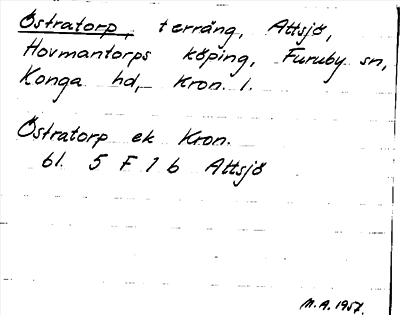 Östratorp, terräng, Attsjö,
Hovmantorps köping, Furuby sn,
Konga hd, Kron. l.
Östratorp ek Kron.
bl. 5 F 1 b Attsjö
M.A. 1957.